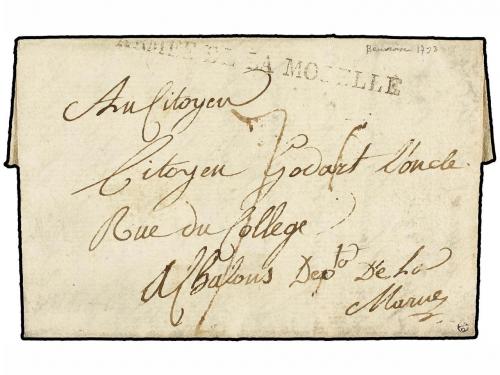 1793
ARMÉE DE LA MOSELLE
Au Citoyen
Citoyen Godart l'oncle
Rue du College
A Chalons Depto De La
Marne